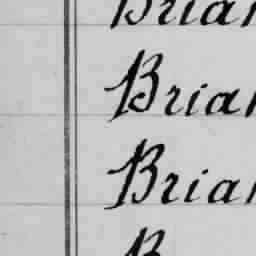 Brian
Brian
Brian
B